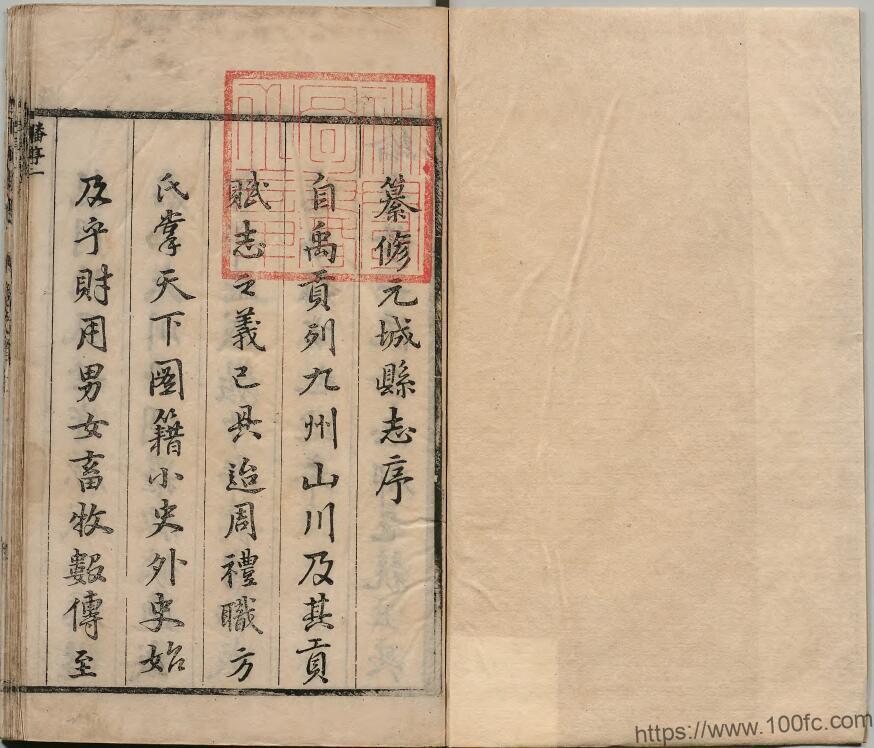 纂修元城縣志序
自禹貢列九州山川及其貢
賦志之義已具迨周禮職方
氏掌天下圖籍小史外史始
及乎財用男女畜牧數傳至
https://www.100fc.com